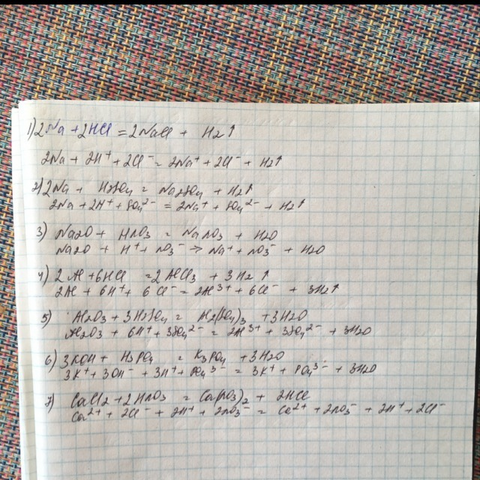 1) 2Na + 2HCl = 2NaCl + H2↑
2Na + 2H⁺ + 2Cl⁻ = 2Na⁺ + 2Cl⁻ + H2↑
2) 2Na + H2SO4 = Na2SO4 + H2↑
2Na + 2H⁺ + SO4²⁻ = 2Na⁺ + SO4²⁻ + H2↑
3) Na2O + HNO3 = NaNO3 + H2O
Na2O + H⁺ + NO3⁻ → Na⁺ + NO3⁻ + H2O
4) 2Al + 6HCl = 2AlCl3 + 3H2↑
2Al + 6H⁺ + 6Cl⁻ = 2Al³⁺ + 6Cl⁻ + 3H2↑
5) Al2O3 + 3H2SO4 = Al2(SO4)3 + 3H2O
Al2O3 + 6H⁺ + 3SO4²⁻ = 2Al³⁺ + 3SO4²⁻ + 3H2O
6) 3KOH + H3PO4 = K3PO4 + 3H2O
3K⁺ + 3OH⁻ + 3H⁺ + PO4³⁻ = 3K⁺ + PO4³⁻ + 3H2O
7) CaCl2 + 2HNO3 = Ca(NO3)2 + 2HCl
Ca²⁺ + 2Cl⁻ + 2H⁺ + 2NO3⁻ = Ca²⁺ + 2NO3⁻ + 2H⁺ + 2Cl⁻